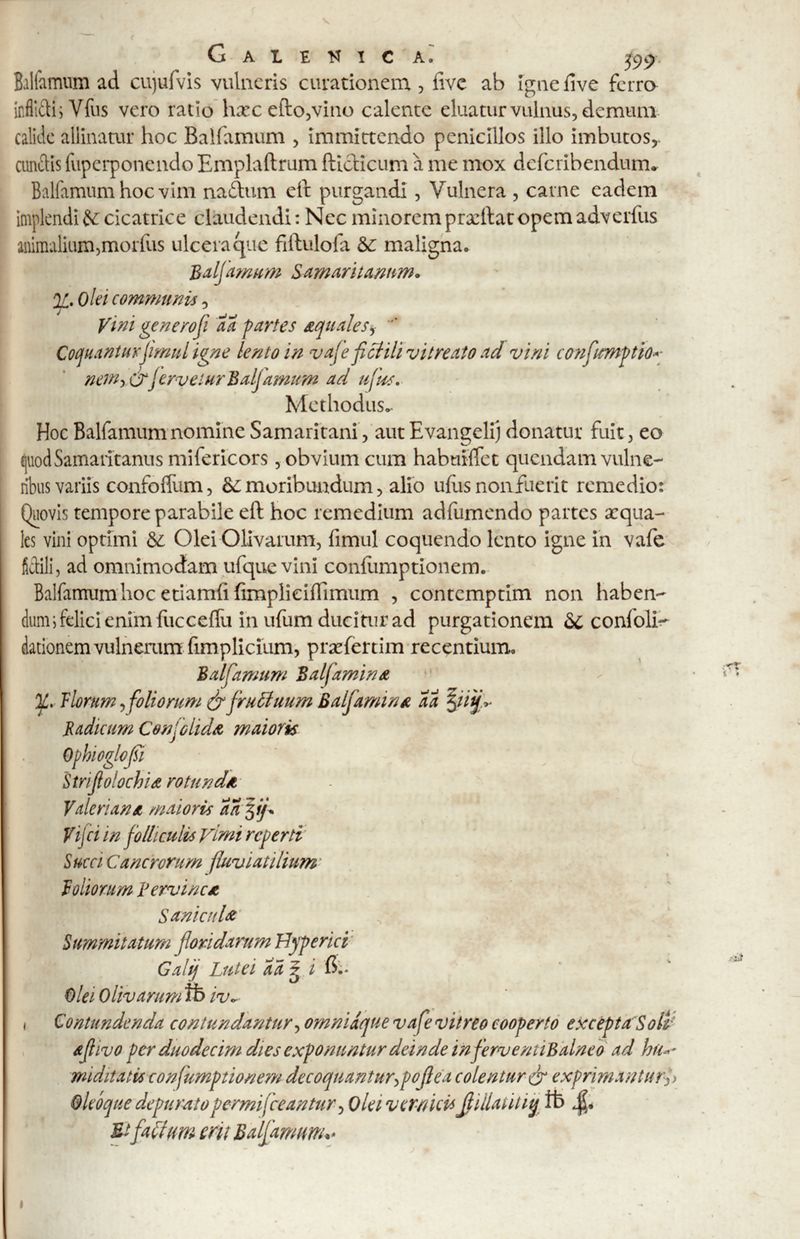 GALENICA. 399
Balſamum ad cujuſvis vulneris curationem, ſive ab igne ſive ferro
inflicti; Vſus vero ratio hæc eſto, vino calente eluatur vulnus, demum
calide allinatur hoc Balſamum, immittendo penicillos illo imbutos,
cunctis ſuperponendo Emplaſtrum ſticticum à me mox deſcribendum.
Balſamum hoc vim nactum eſt purgandi, Vulnera, carne eadem
implendi & cicatrice claudendi: Nec minorem præſtat opem adverſus
animalium, morſus ulceraque fiſtuloſa & maligna.
Balſamum Samaritanum.
℞. Olei communis,
Vini generoſi āā partes æquales,
Coquantur ſimul igne lento in vaſe fictili vitreato ad vini conſumptio-
nem, & ſervetur Balſamum ad uſus.
Methodus.
Hoc Balſamum nomine Samaritani, aut Evangelij donatur fuit, eo
quod Samaritanus miſericors, obvium cum habuiſſet quendam vulne-
ribus variis confoſſum, & moribundum, alio uſus non fuerit remedio:
Quovis tempore parabile eſt hoc remedium adſumendo partes æqua-
les vini optimi & Olei Olivarum, ſimul coquendo lento igne in vaſe
fictili, ad omnimodam uſque vini conſumptionem.
Balſamum hoc etiamſi ſimpliciſſimum, contemptim non haben-
dum; felici enim ſucceſſu in uſum ducitur ad purgationem & conſoli-
dationem vulnerum ſimplicium, præſertim recentium.
Balſamum Balſaminæ
℞. Florum, foliorum & fructuum Balſaminæ āā ℥iiij.
Radicum Conſolidæ maioris
Ophiogloſſi
Striſtolochiæ rotundæ
Valerianæ maioris āā ℥ij.
Viſci in folliculis Vlmi reperti
Succi Cancrorum fluviatilium
Foliorum Pervincæ
Saniculæ
Summitatum floridarum Hyperici
Galij Lutei āā ℥ i ß.
Olei Olivarum ℔ iv.
Contundenda contundantur, omniáque vaſe vitreo cooperto excepta Soli
æſtivo per duodecim dies exponuntur deinde in ferventi Balneo ad hu-
miditatis conſumptionem decoquantur, poſtea colentur & exprimantur,
Oleóque depurato permiſceantur, Olei vernicis ſtillatitij ℔ ß.
Et factum erit Balſamum.